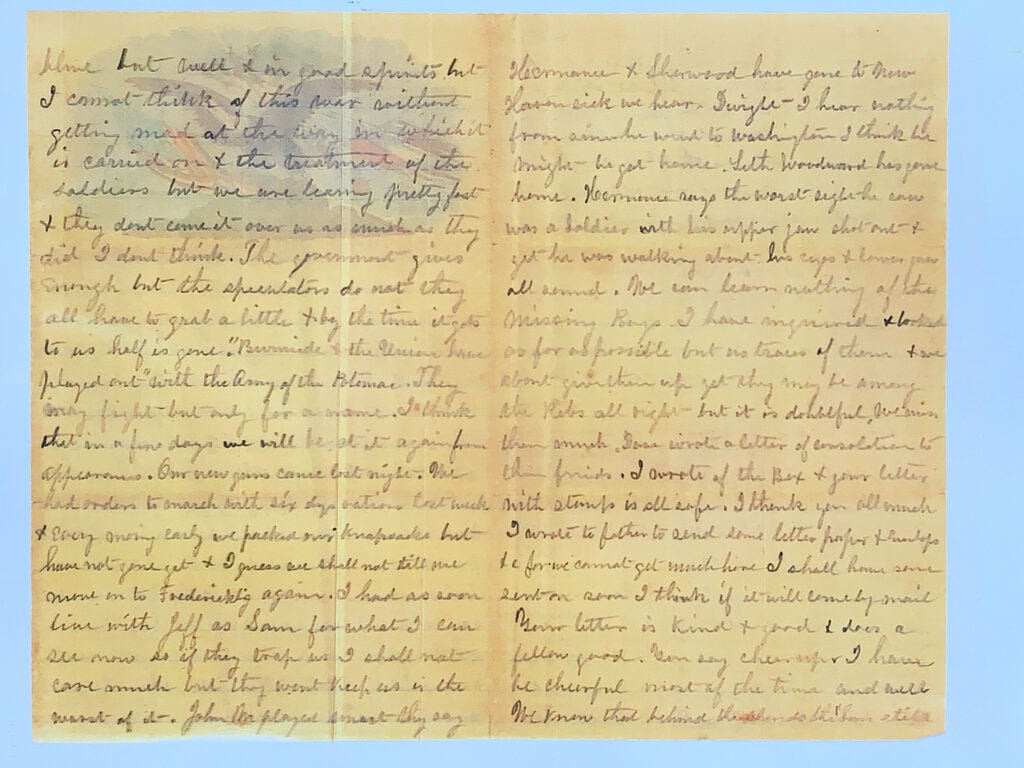 blue but well & in good spirits but
I cannot think of this war without
getting mad at the way in which it
is carried on & the treatment of the
soldiers but we are learing pretty fast
& they dont come it over us as much as they
did I dont think. The government gives
Enough but the speculators do not they
all have to grab a little & by the time it gets
to us half is gone. "Burnside & the Union have
played out" with the Army of the Potomac. They
may fight but only for a name. I think
that in a few days we will be at it again from
appearances. Our new guns came last night. We
had orders to march with six days rations last week
& Every morning early we packed our Knapsacks but
have not gone yet & I guess we shall not till we
move on to again. I had as soon
live with Jeff as Sam for what I can
see now so if they trap us I shall not
care much but they wont keep us is the
worst of it. John played smart they say
Hermance & Sherwood have gone to New
Haven sick we hear. Dwight I hear nothing
from since he went to Washington I think he
might be got home. Seth Woodward has gone
home. Hermance says the worst sight he saw
was a Soldier with his upper jaw shot out &
yet he was walking about his eyes & lower jaw
all sound. We can learn nothing of the
Missing Boys. I have inquired & looked
as far as possible but no traces of them & we
about give them up yet they may be among
the Rebs all right but it is doubtful. We miss
them much. wrote a letter of consolation to
their friends. I wrote of the Box & your letter
with stamps is all safe. I thank you all much
I wrote to father to send some letter paper &
&c for we cannot get much here I shall have some
sent on soon I think if it will come by mail
Your letter is kind & good & does a
fellow good. You say cheer up I have
be cheerful most of the time and well
We know that behind the clouds the Sun still